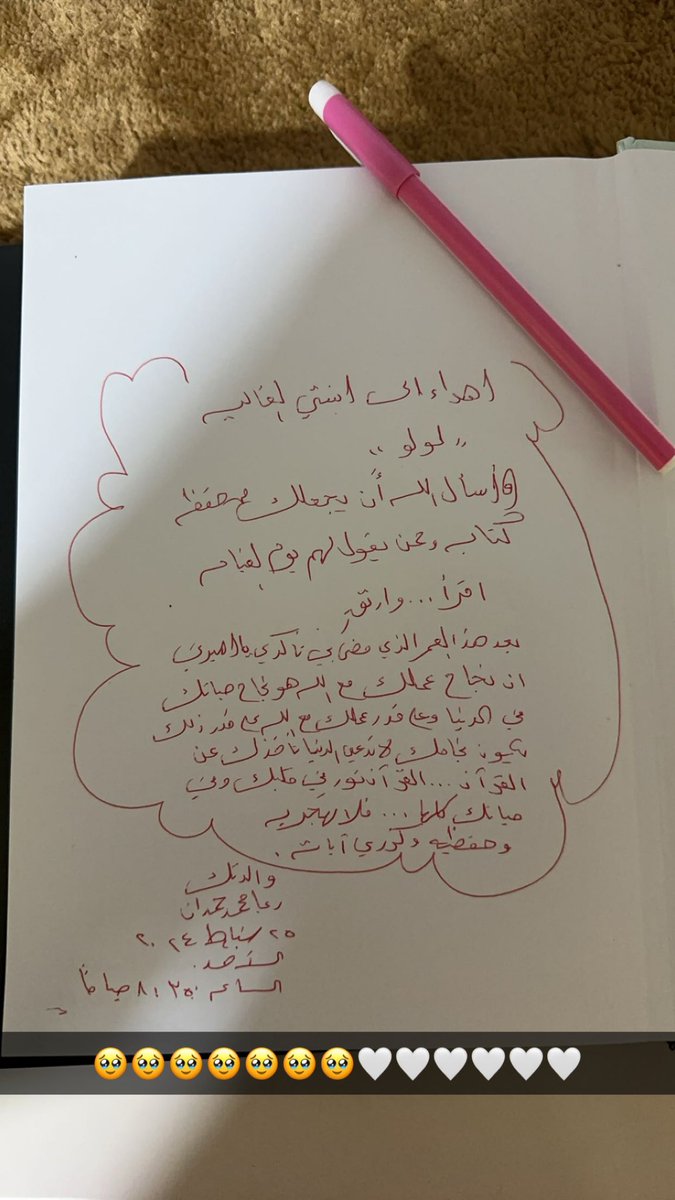 اهداء الى ابنتي الغاليه
"لولو"
أسأل الله أن يجعلك من حفظة
كتابه وممن يقول لهم يوم القيامه
اقرأ... وارتقِ
بعد هذا العمر الذي مضى بي تأكدي يا أميرتي
ان نجاح عملك مع الله هو نجاح حياتك
في الدنيا وعلى قدر عملك مع الله على قدر ذلك
يكون نجاحك لا تدعي الدنيا تأخذك عن
القرآن... القرآن نور في قلبك وفي
حياتك كلها... فلا تهجريه
وحفظيه وكرري آياته.
والدتك
محمد حمدان
٢٥ شباط ٢٠٢٤
الأحد
الساعه ٨:٢٥ صباحًا
🥹🥹🥹🥹🥹🥹🥹🤍🤍🤍🤍🤍🤍